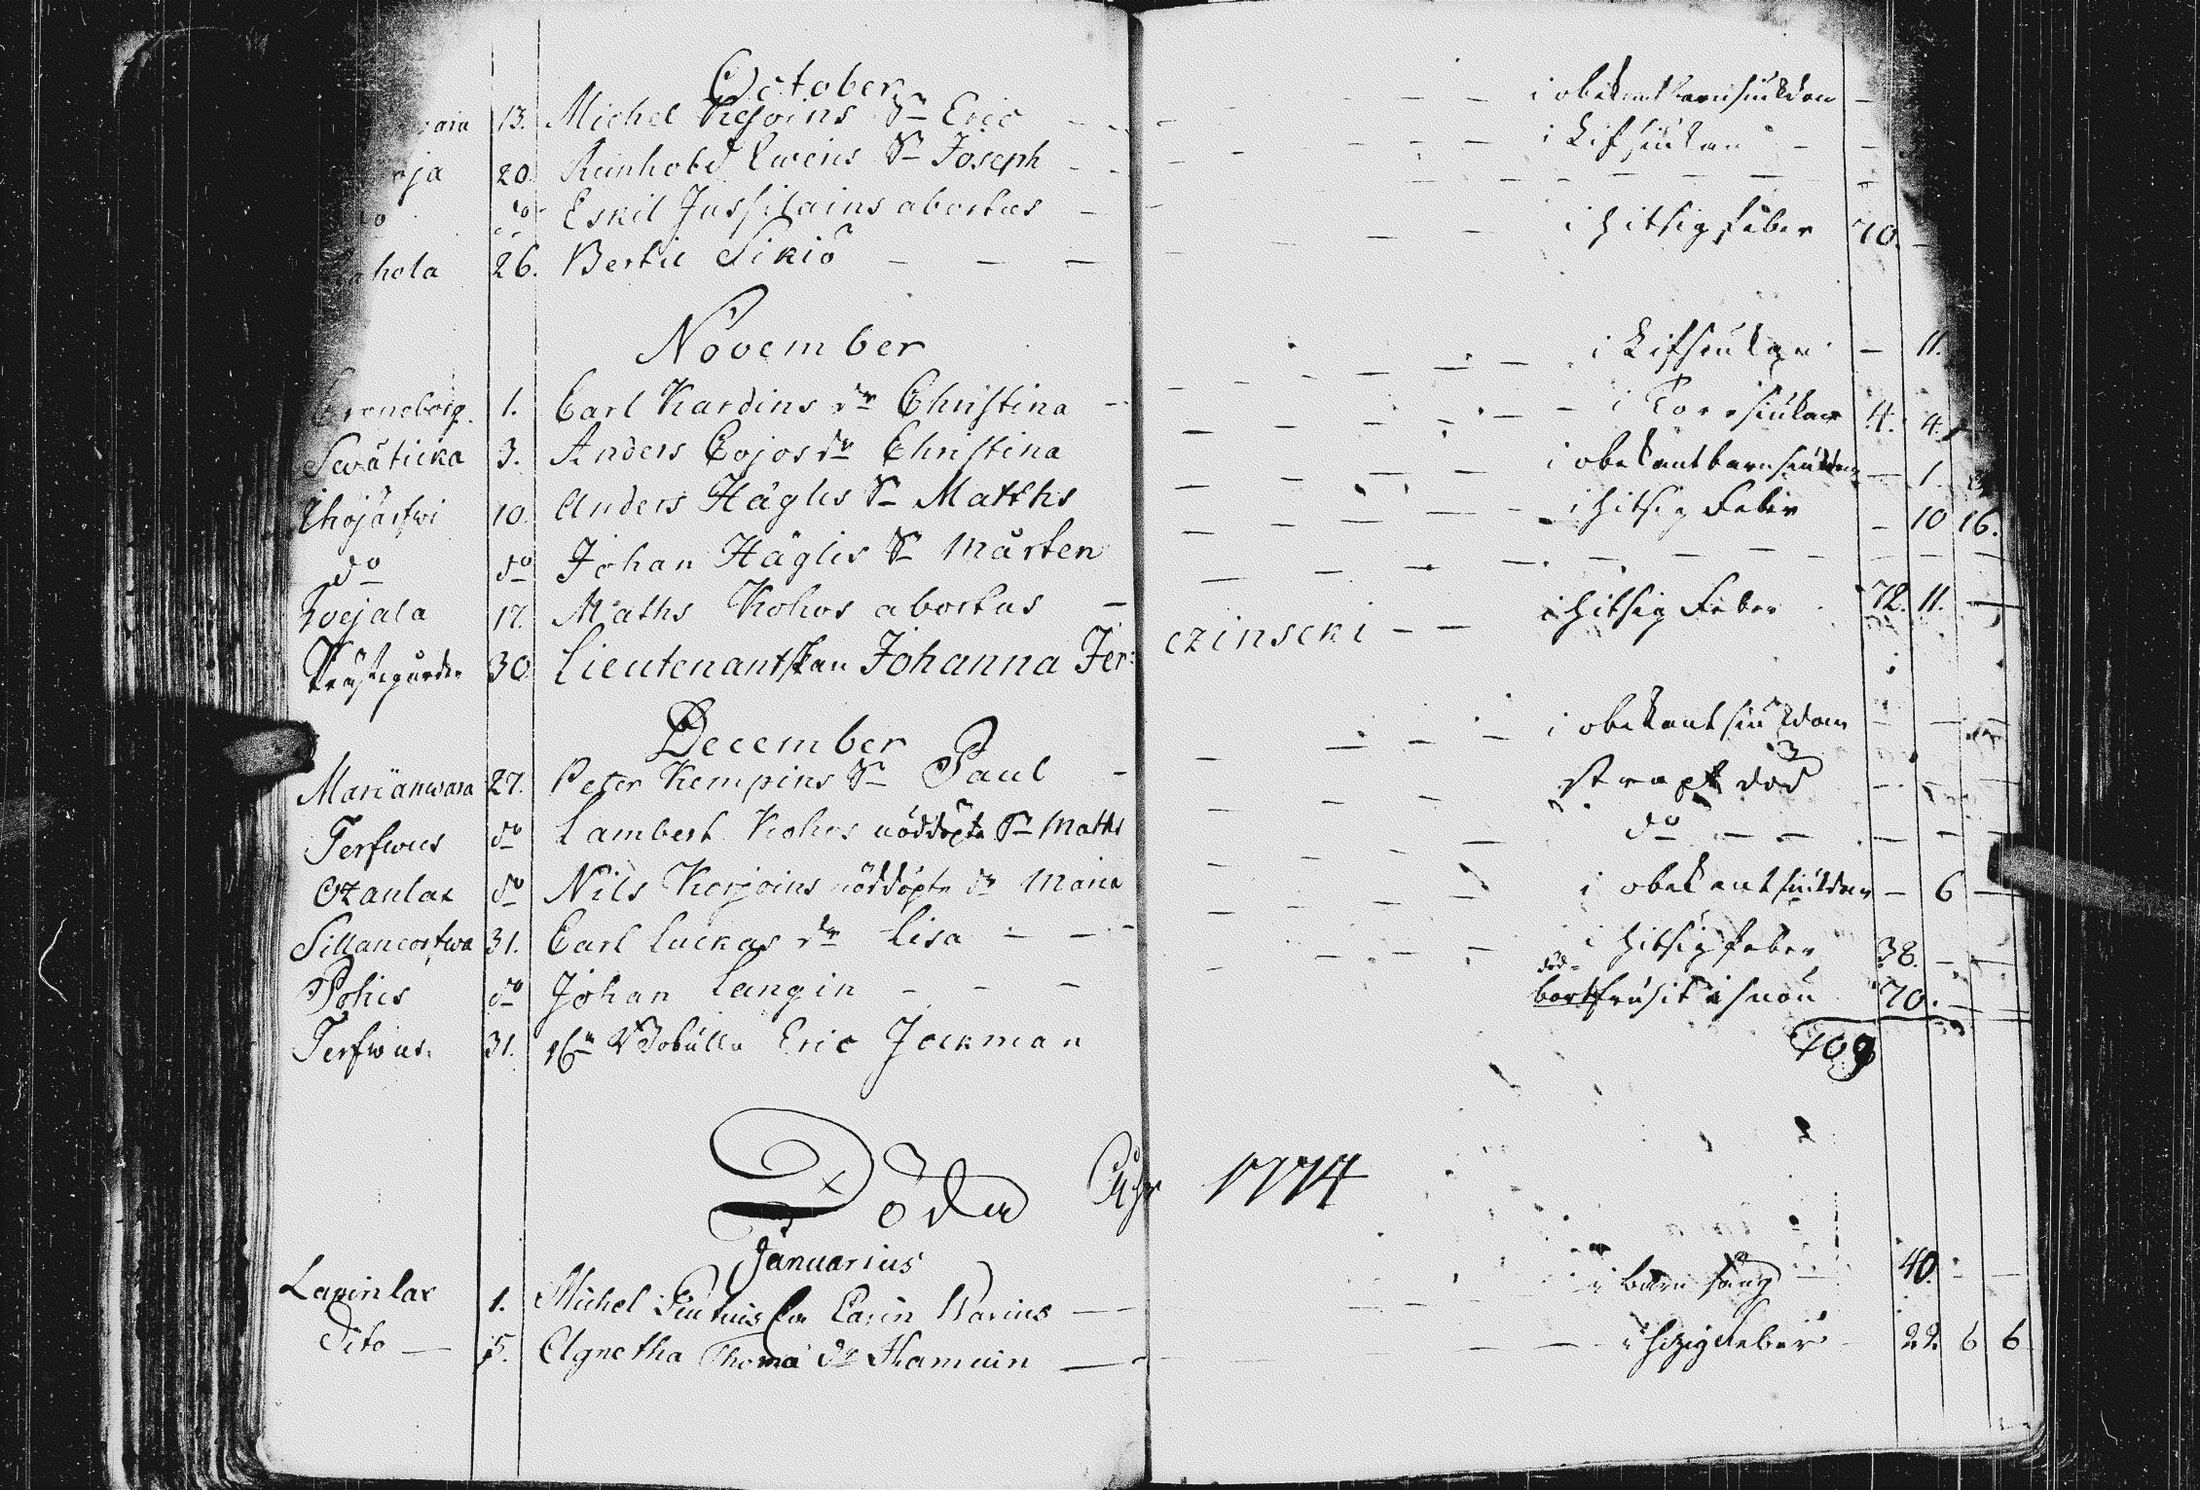 October
13. Michel Kejoins Sn Eric - - i obekant barnsiukdom -
20. Reinhold Ewens Sn Joseph - - i Kiksiukan - -
do Eskil Jussilains abortus - -
hola 26. Bertil Sikiö - - - i hitsig feber 70. -
November
Croneborg 1. Carl Kardins dr Christina - i Kiksiukan - 11.
Sawaticka 3. Anders Cojos dr Christina - 4. 4.
Ihojärfwi 10. Anders Häglis Sn Matths - i obekant barnsiukdom - 1.
do do Johan Häglis Sn Mårten - i hitsig Feber - 10 16.
Koejala 17. Maths Kokos abortus - - -
Prästegården 30 Lieutenantskan Johanna Jer: czinscki - - i hitsig Feber 72. 11. -
December
Marianwara 27. Peter Kempins Sn Paul - i obekant siukdom - -
Terfwus do Lambert Kokos nöddöpte Sn Maths - strax död - - -
Oxanlax do Nils Korjoins nöddöpte dr Maria - do - - - -
Sillancorfwa 31. Carl Luckas dr Lisa - - - i obekant siukdom - 6 -
Pohis do Johan Langin - - - i hitsig feber 38. - -
död-
Terfwus. 31. Eric Jockman bortfrusit i snön 70. -
109
Döda Åhr 1774
Januarius
Lapinlax 1. Michel Carin Warius - - i barnsäng - 40. - -
Dito - 5. Agnetha Thoma dr Hamuin - - i hizig Feber - 22 6 6